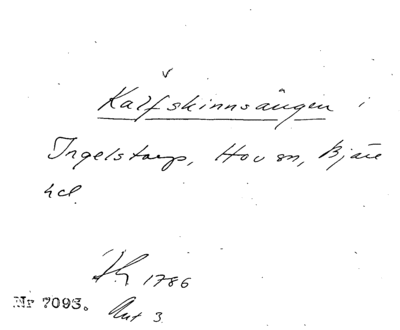 Kalfskinnsängen i
Ingelstorp, Hov sn, Bjäre
hd.
1786
Nr 7093. Akt 3.